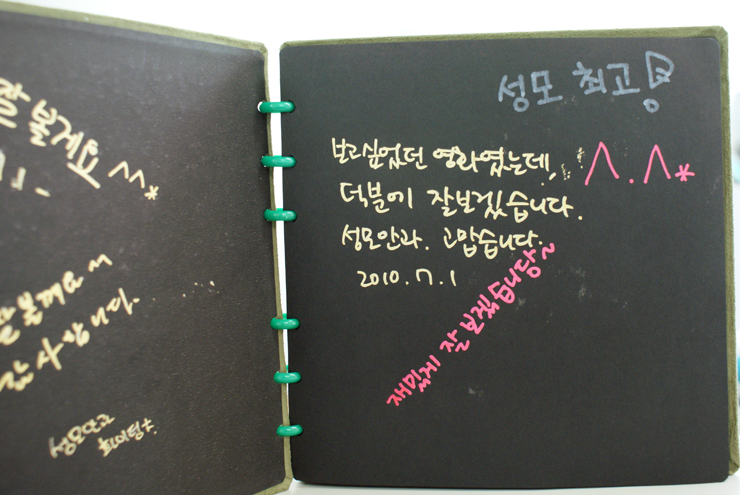 잘 볼게요 ^^*
잘 볼께요 ^^
감사합니다.
성모안과
화이팅!
성모 최고!
보고싶었던 영화였는데,
덕분에 잘보겠습니다.
성모안과. 고맙습니다.
2010.7.1
^.^*
재밌게 잘 보겠습니당~